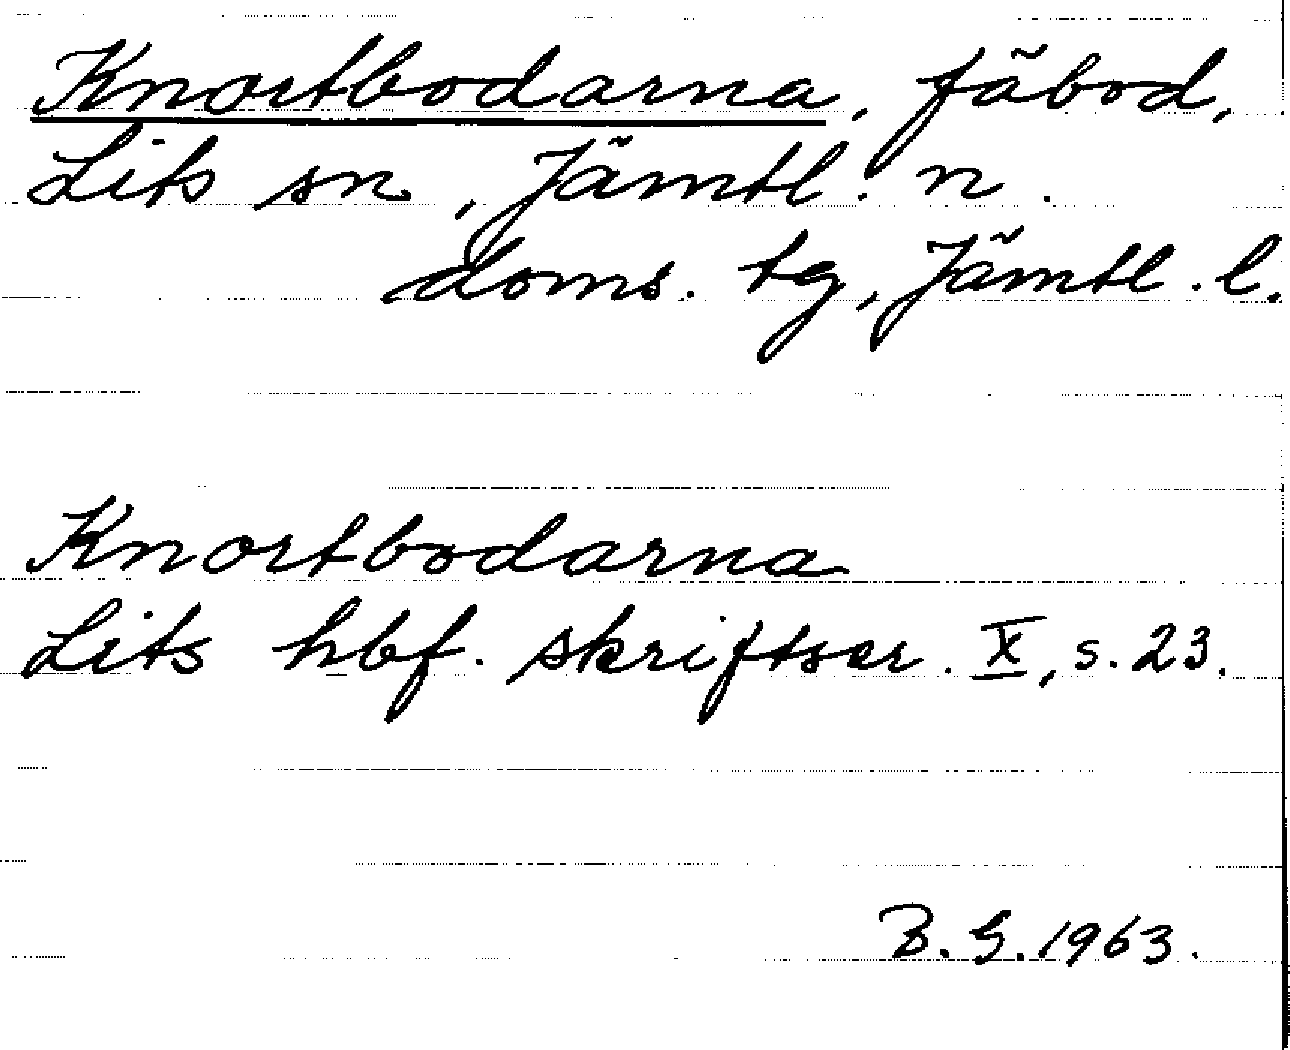 Knortbodarna, fäbod,
Lits sn, Jämtl. n.
doms. tg, Jämtl. l.
Knortbodarna
Lits hbf. skriftser. X, s. 23.
B. G. 1963.